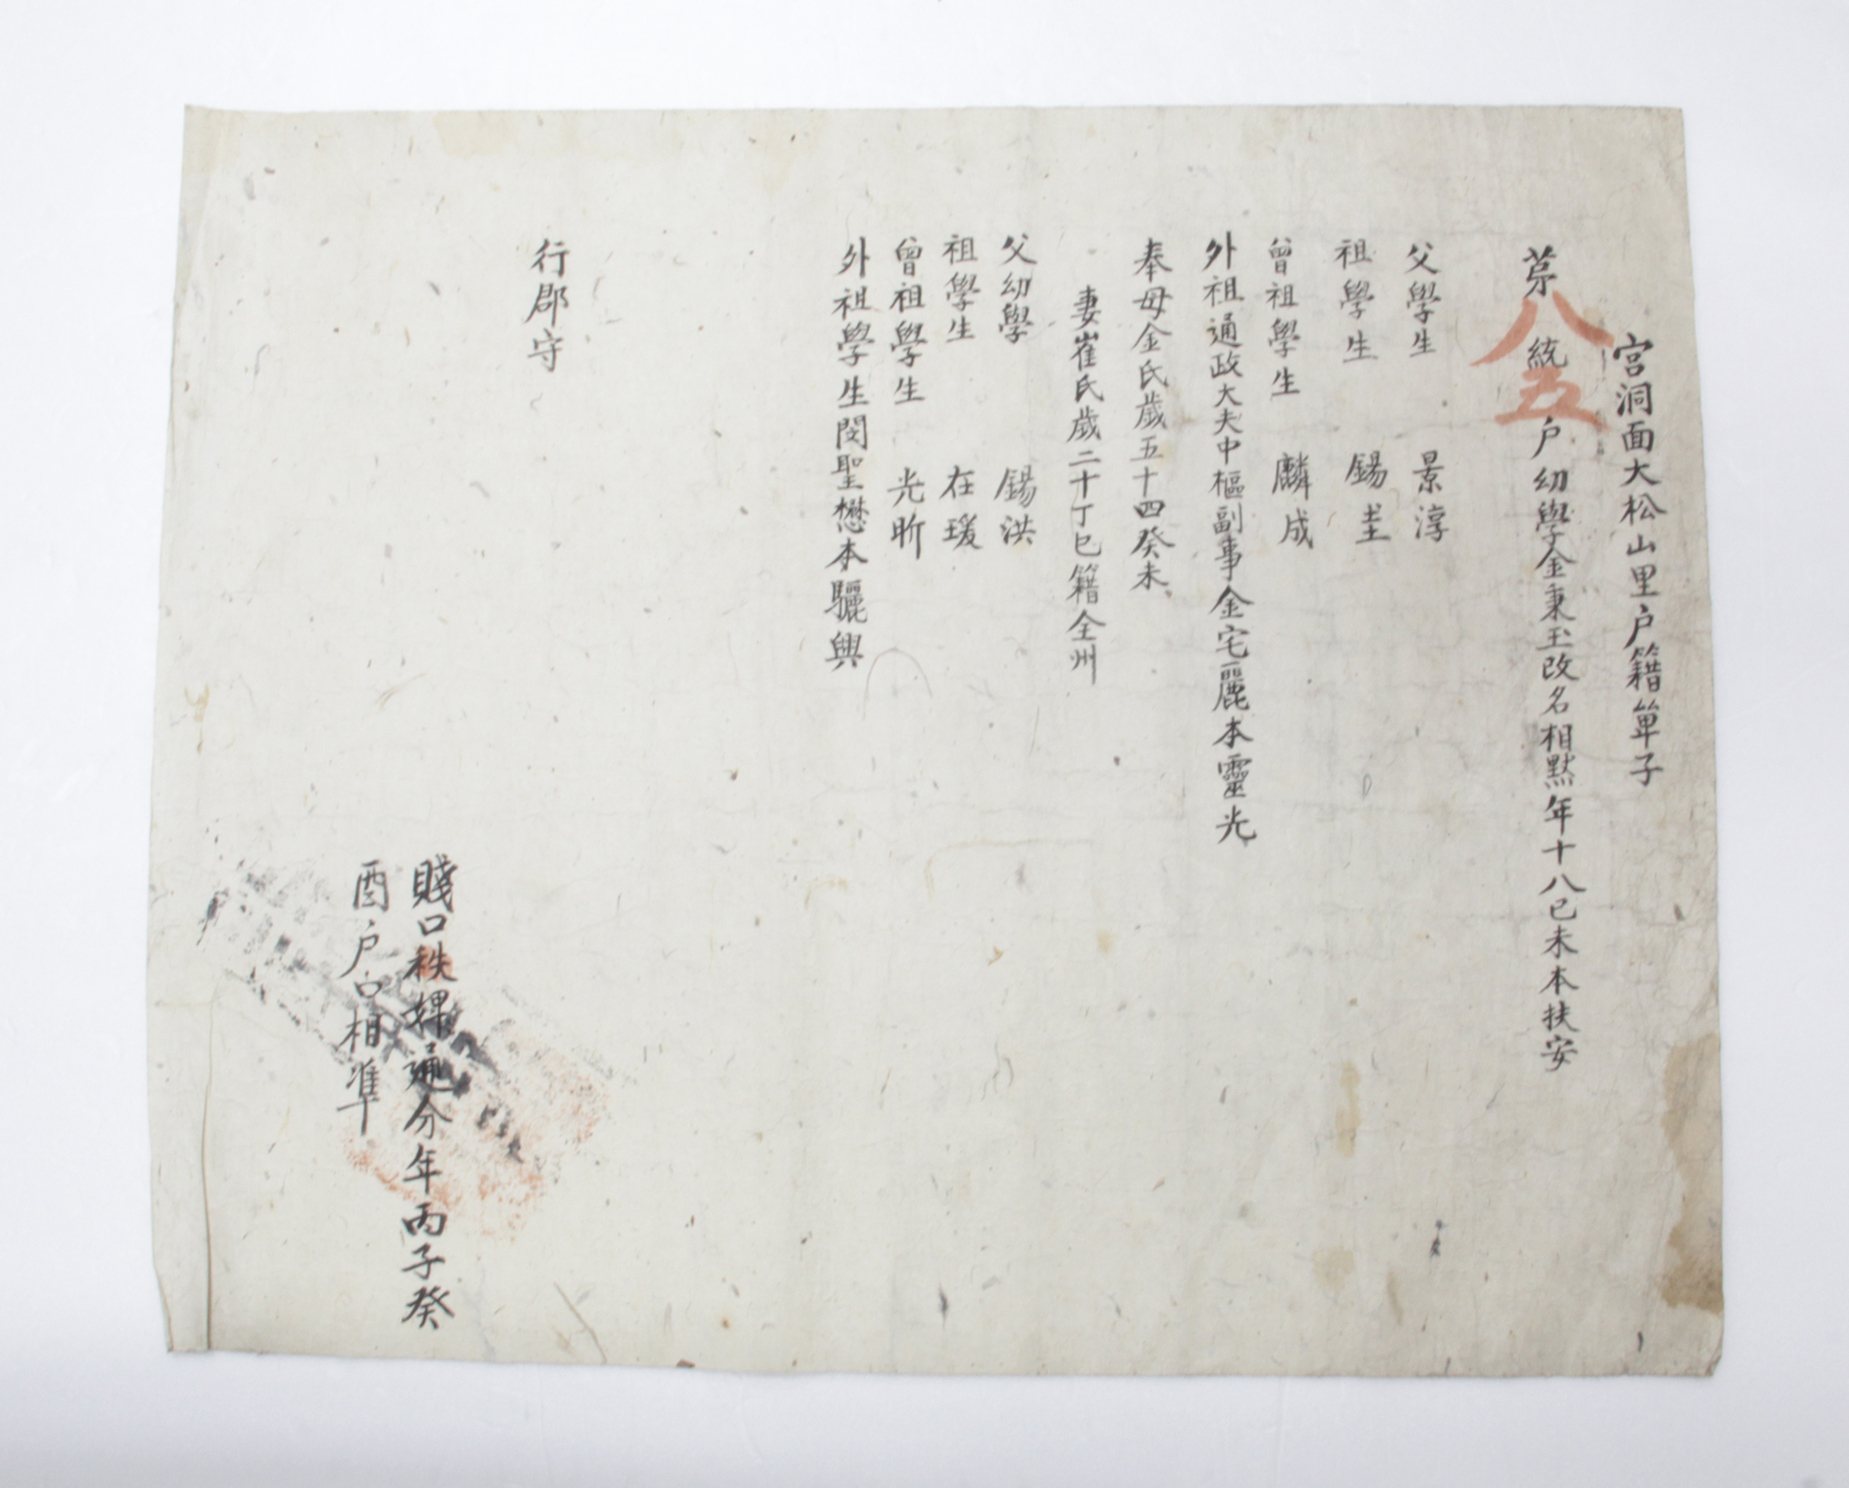 宮洞面大松山里户籍單子
苐八統五户幼學金秉玉改名相默年十八己未本扶安
父學生 景淳
祖學生 錫圭
曾祖學生 麟成
外祖通政大夫中樞副事金宅麗本靈光
奉母金氏歲五十四癸未
妻崔氏歲二十丁巳籍全州
父幼學 錫洪
祖學生 在瑗
曾祖學生 光昕
外祖學生閔聖懋本驪興
行郡守
賤口秩婢通分年丙子癸
酉户口相準